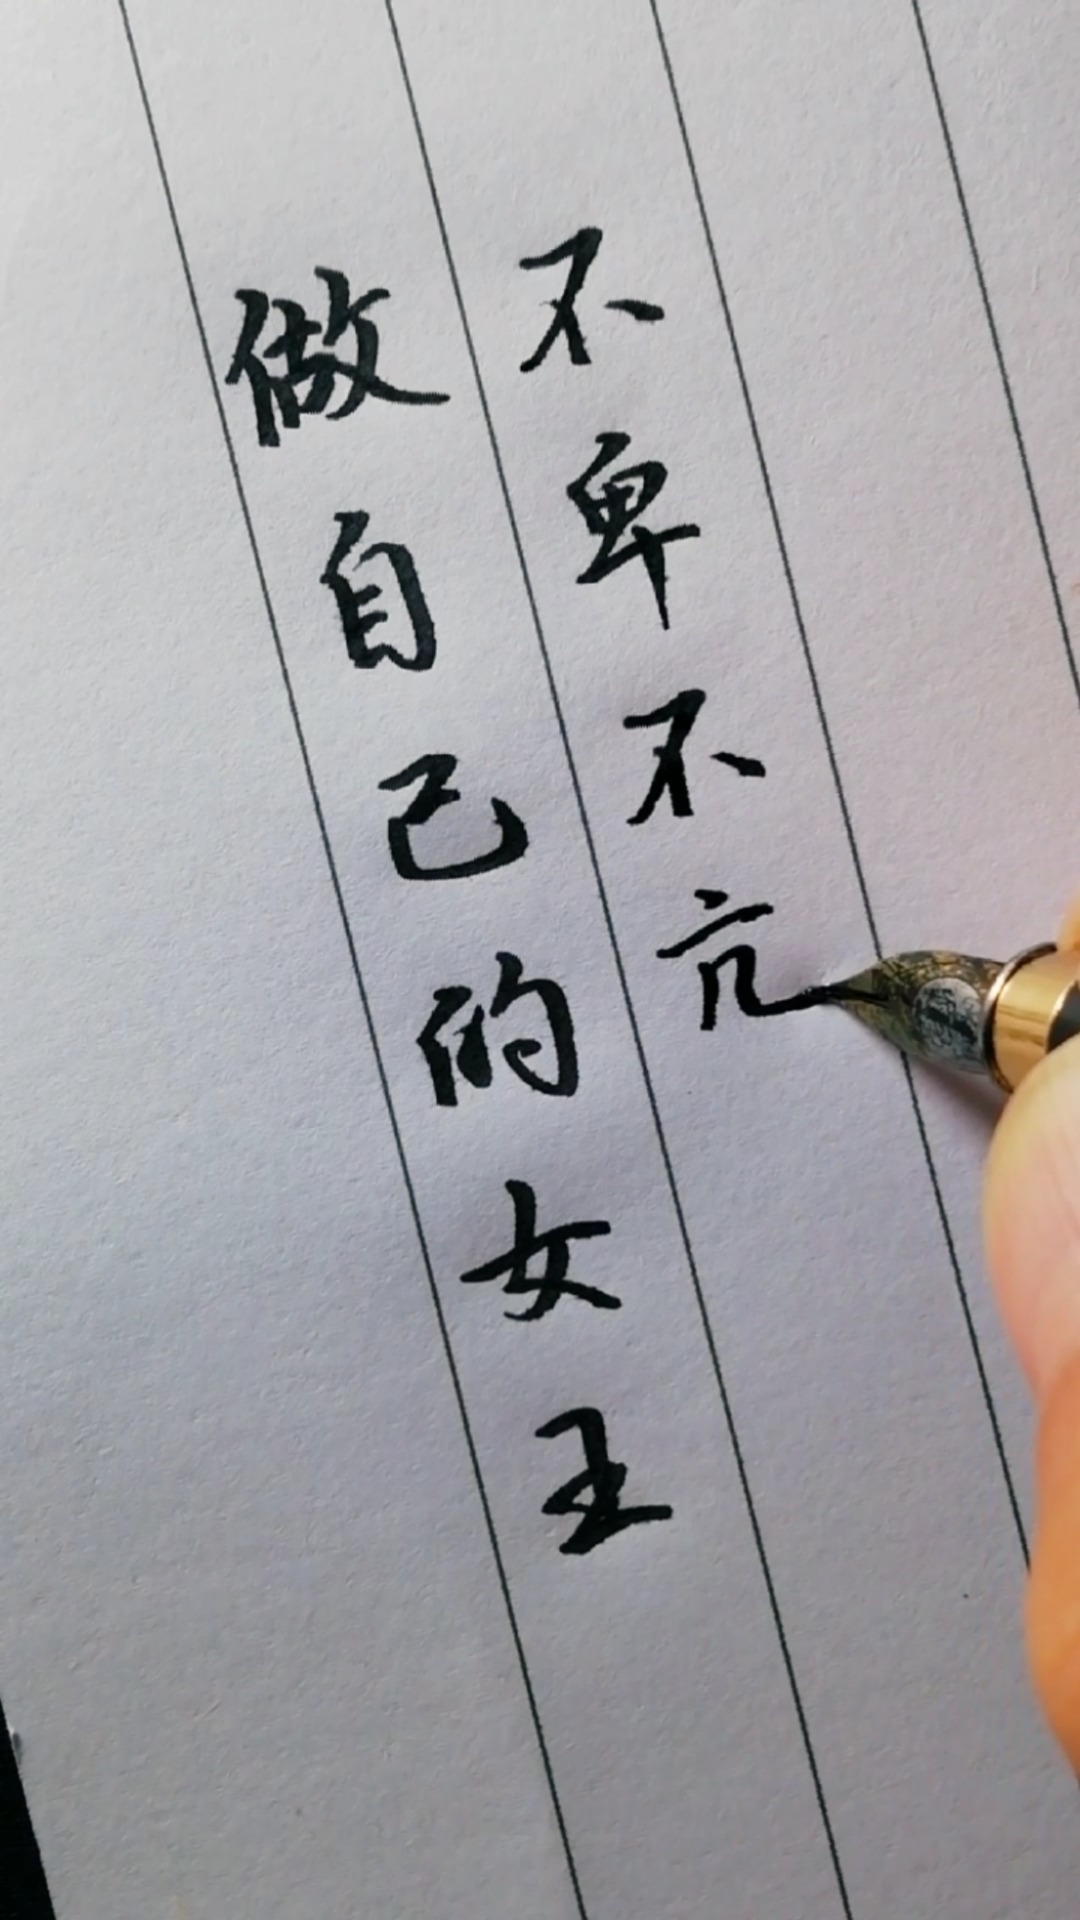 不卑不亢
做自己的女王